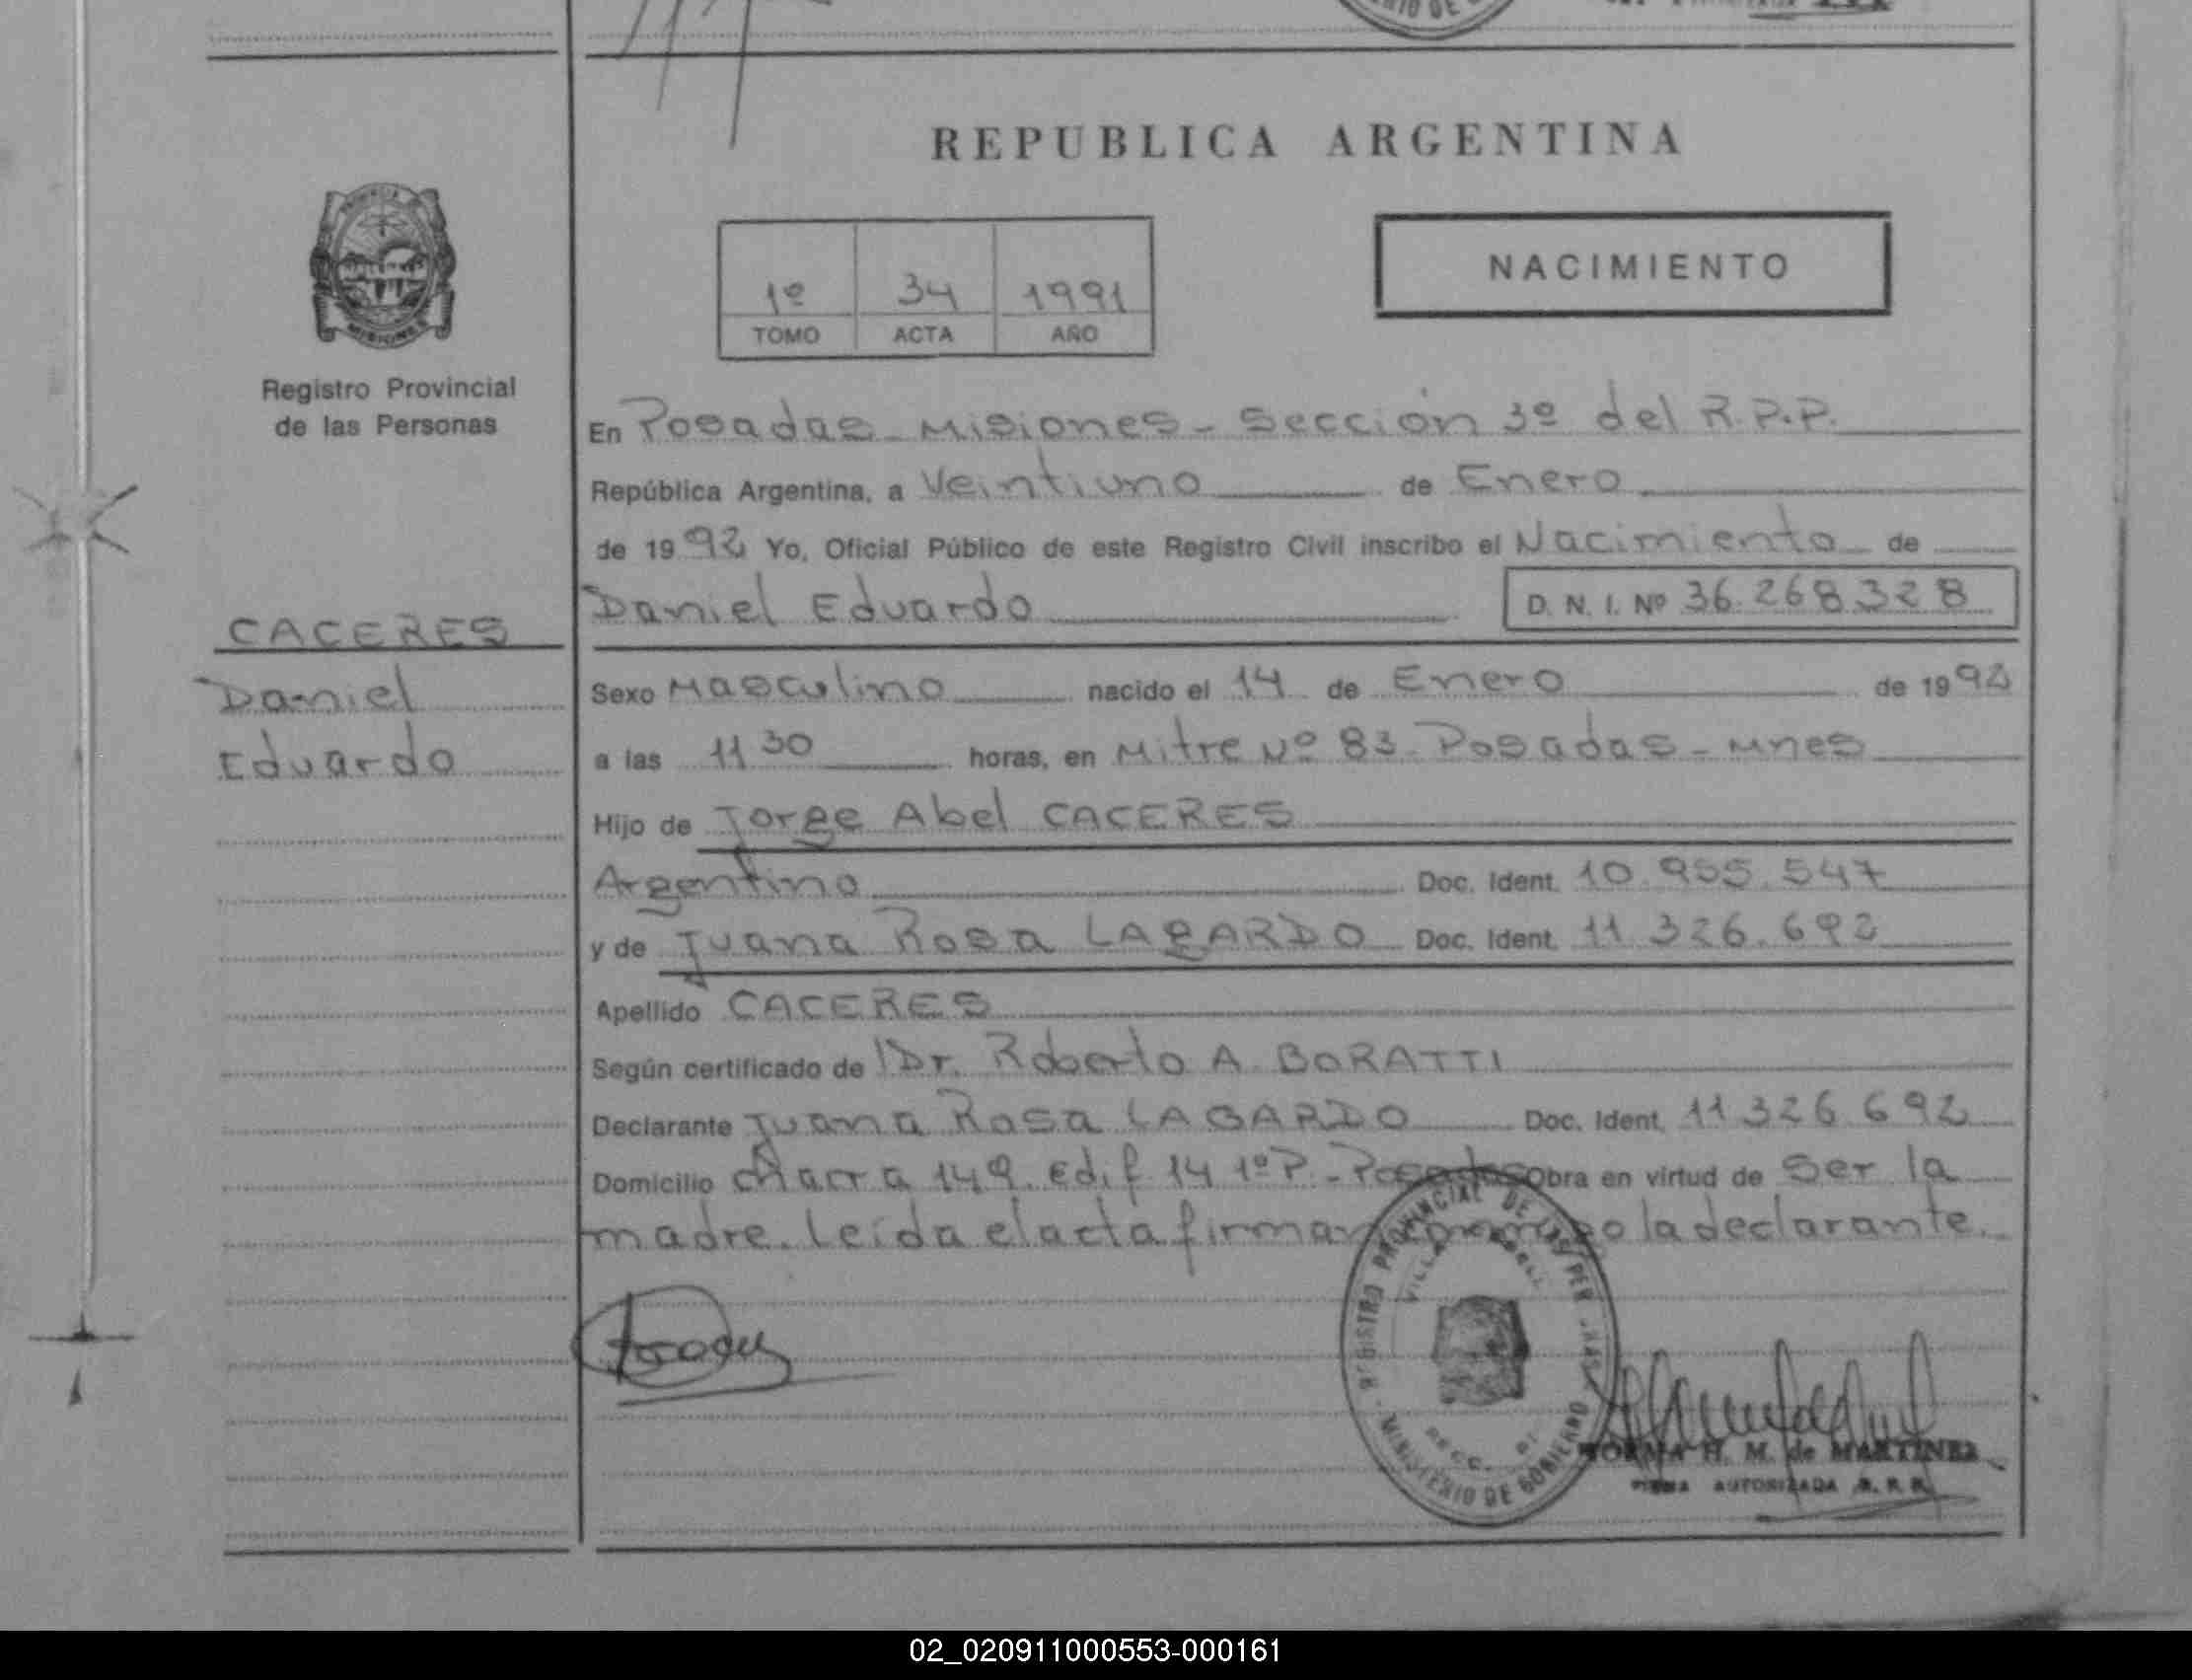 REPUBLICA ARGENTINA
NACIMIENTO
1º 34 1991
TOMO ACTA AÑO
MISIONES
Registro Provincial
de las Personas
CACERES
Daniel
Eduardo
En Posadas - Misiones - Sección 3º del R.P.P.
República Argentina, a Veintiuno de Enero
de 1992 Yo, Oficial Público de este Registro Civil inscribo el Nacimiento de
Daniel Eduardo D. N. I. Nº 36.268.328
Sexo Masculino nacido el 14 de Enero de 1992
a las 11 30 horas, en Mitre Nº 83 - Posadas - Mnes
Hijo de Jorge Abel CACERES
Argentino Doc. Ident. 10.955.547
y de Juana Rosa LAGARDO Doc. Ident. 11.326.692
Apellido CACERES
Según certificado de Dr. Roberto A. BORATTI
Declarante Juana Rosa LAGARDO Doc. Ident. 11.326.692
Domicilio chacra 149. edif. 14 1º P. - Posadas Obra en virtud de Ser la
madre. Leída el acta firman conmigo la declarante.
REGISTRO PROVINCIAL DE LAS PERSONAS
MINISTERIO DE GOBIERNO
NORMA H. M. de MARTINEZ
FIRMA AUTORIZADA R. P. P.
02_020911000553-000161